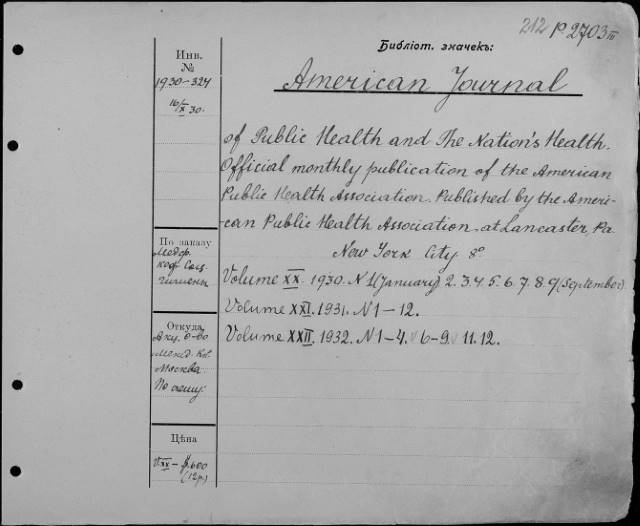 212 P2703 III
Библіот. значекъ:
American Journal
of Public Health and The Nation's Health.
Official monthly publication of the American
Public Health Association. Published by the Ameri-
-can Public Health Association. at Lancaster Pa.
New York City
Volume XX. 1930. N 1(January) 2. 3. 4. 5. 6. 7. 8. 9(September).
Volume XXI. 1931. N 1-12.
Volume XXII. 1932. N 1-4. 6-9. 11.12.
Инв.
№
1930-327
16/X 30.
По заказу
каф. Соц.
гигиены
Откуда
Акц. о-во
Межд. Кн.
Москва
По счету:
Цѣна
V.XX - $.600
(12р.)